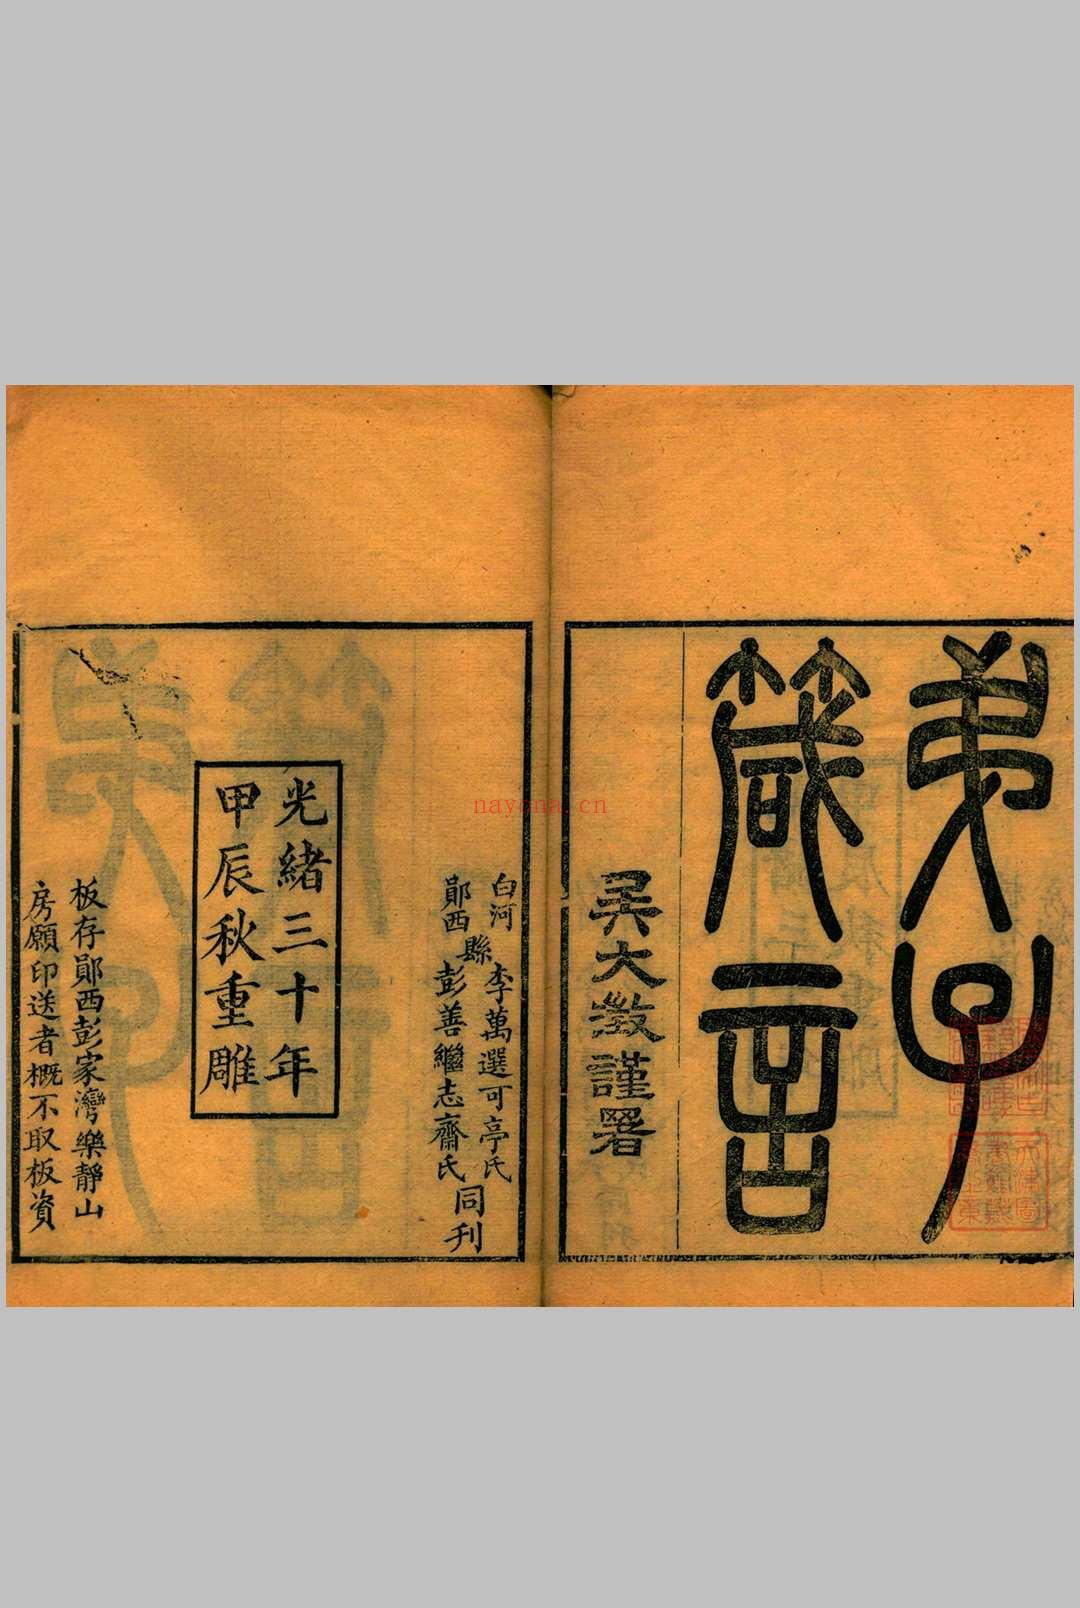 弟子
箴言
吳大澂謹署
白河縣李萬選可亭氏
鄖西縣彭善繼志齋氏
同刊
光緒三十年
甲辰秋重雕
板存鄖西彭家灣樂靜山
房願印送者概不取板資
nayona.cn